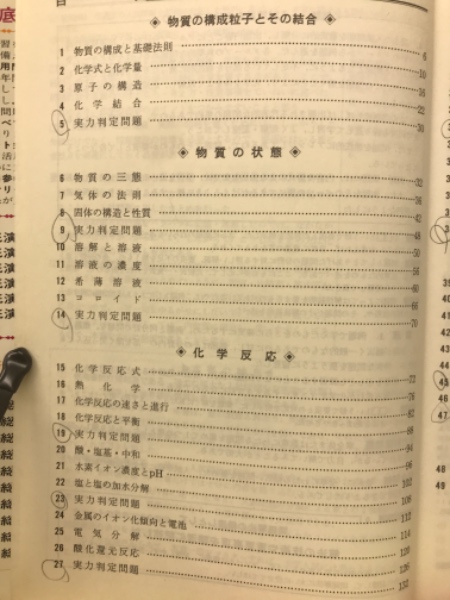 目
◈ 物質の構成粒子とその結合 ◈
1 物質の構成と基礎法則 6
2 化学式と化学量 10
3 原子の構造 16
4 化学結合 22
5 実力判定問題 30
◈ 物質の状態 ◈
6 物質の三態 32
7 気体の法則 36
8 固体の構造と性質 42
9 実力判定問題 48
10 溶解と溶液 50
11 溶液の濃度 56
12 希薄溶液 60
13 コロイド 66
14 実力判定問題 70
◈ 化学反応 ◈
15 化学反応式 72
16 熱化学 76
17 化学反応の速さと進行 82
18 化学反応と平衡 88
19 実力判定問題 94
20 酸・塩基・中和 96
21 水素イオン濃度とpH 102
22 塩と塩の加水分解 106
23 実力判定問題 108
24 金属のイオン化傾向と電池 112
25 電気分解 114
26 酸化還元反応 120
27 実力判定問題 132
39
40
41
42
43
44
45
46
47
48
49